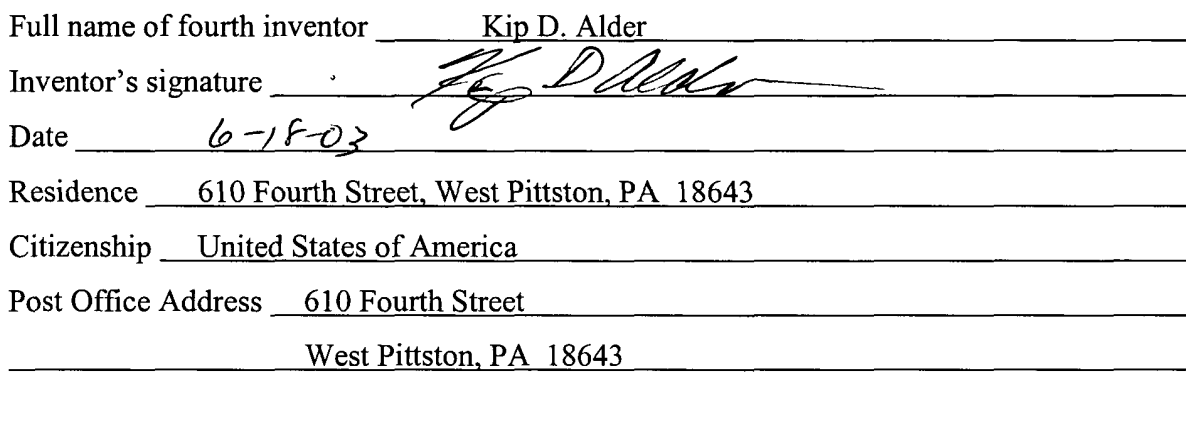 Full name of fourth inventor Kip D. Alder
Inventor's signature Kip D Alder
Date 6-18-03
Residence 610 Fourth Street, West Pittston, PA 18643
Citizenship United States of America
Post Office Address 610 Fourth Street
West Pittston, PA 18643